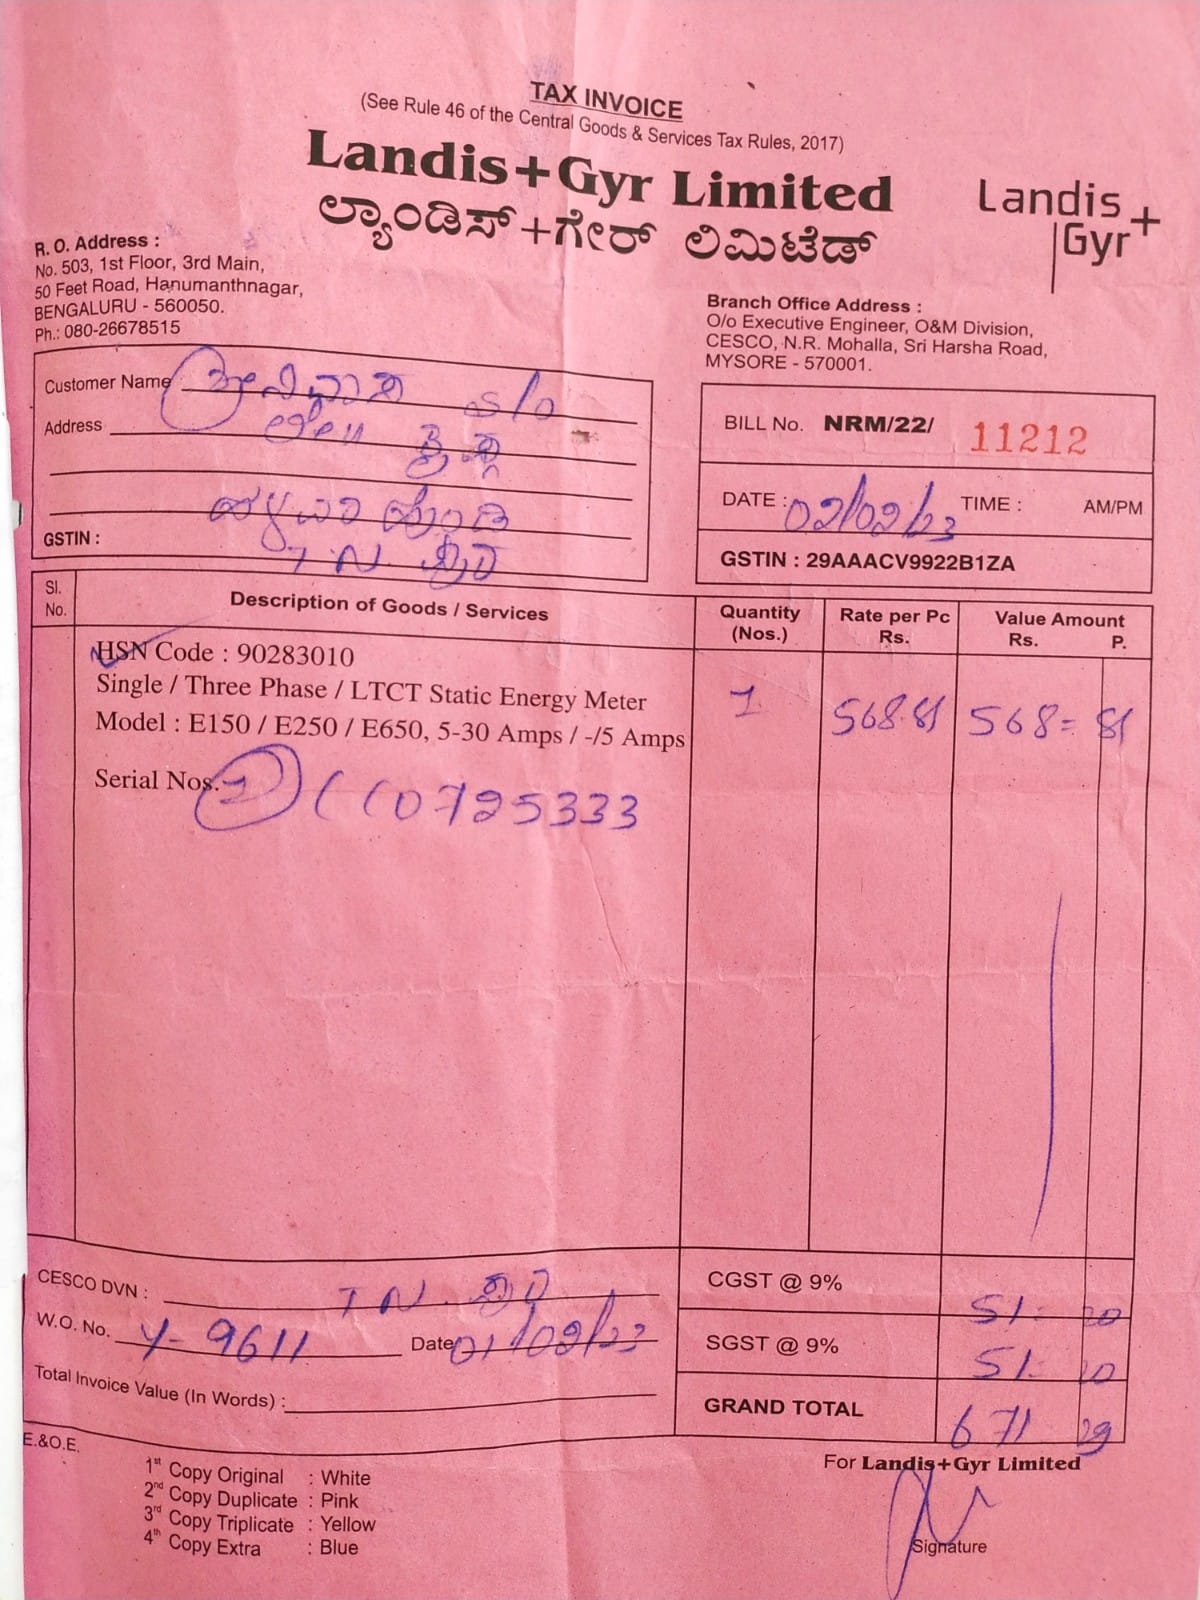 TAX INVOICE
(See Rule 46 of the Central Goods & Services Tax Rules, 2017)
Landis+Gyr Limited
ಲ್ಯಾಂಡಿಸ್+ಗೇರ್ ಲಿಮಿಟೆಡ್
Landis
Gyr+
R. O. Address :
No. 503, 1st Floor, 3rd Main,
50 Feet Road, Hanumanthnagar,
BENGALURU - 560050.
Ph.: 080-26678515
Branch Office Address :
O/o Executive Engineer, O&M Division,
CESCO, N.R. Mohalla, Sri Harsha Road,
MYSORE - 570001.
Customer Name ಶ್ರೀನಿವಾಸ S/O
Address
GSTIN :
T. N. ಪುರ
BILL No. NRM/22/ 11212
DATE : 02/02/23 TIME : AM/PM
GSTIN : 29AAACV9922B1ZA
Sl. No. Description of Goods / Services Quantity (Nos.) Rate per Pc Rs. Value Amount Rs. P.
HSN Code : 90283010
Single / Three Phase / LTCT Static Energy Meter
Model : E150 / E250 / E650, 5-30 Amps / -/5 Amps 1 568.81 568= 81
Serial Nos. 0725333
CESCO DVN : T N. ಪುರ
W.O. No. Y-9611 Date 01/02/23
Total Invoice Value (In Words) :
CGST @ 9% 51. 20
SGST @ 9% 51. 20
GRAND TOTAL 671 29
E.&O.E.
1st Copy Original : White
2nd Copy Duplicate : Pink
3rd Copy Triplicate : Yellow
4th Copy Extra : Blue
For Landis+Gyr Limited
Signature